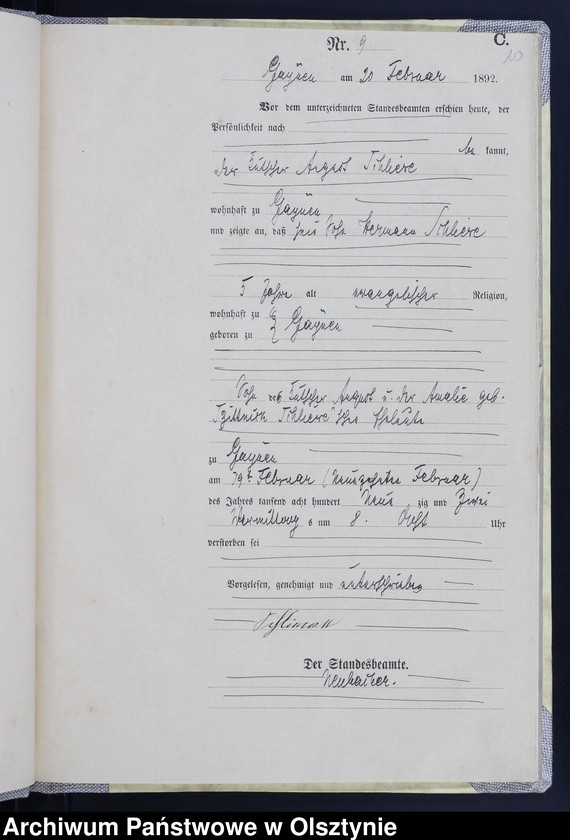 C.
10
Nr. 9
Gaynen am 20 Februar 1892.
Vor dem unterzeichneten Standesbeamten erschien heute, der
Persönlichkeit nach
be kannt,
der Kutscher August
wohnhaft zu Gaynen
und zeigte an, daß sein Sohn Hermann
5 Jahre alt evangelischer Religion,
wohnhaft zu
geboren zu Gaynen
Sohn des Kutscher August u. der Amalie geb.
Eheleute
zu Gaynen
am 19t Februar (Neunzehnten Februar)
des Jahres tausend acht hundert Neun zig und Zwei
Vormittag s um 8. Acht Uhr
verstorben sei
Vorgelesen, genehmigt und unterschrieben
Der Standesbeamte.
Archiwum Państwowe w Olsztynie